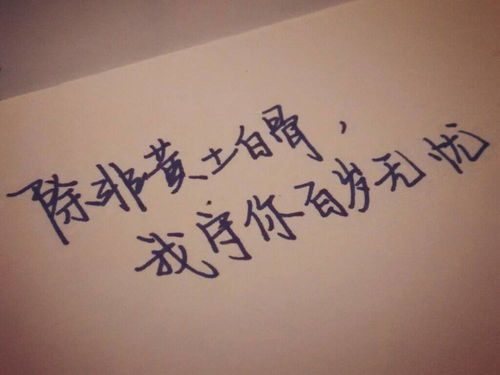 除非黄土白骨,
我守你百岁无忧